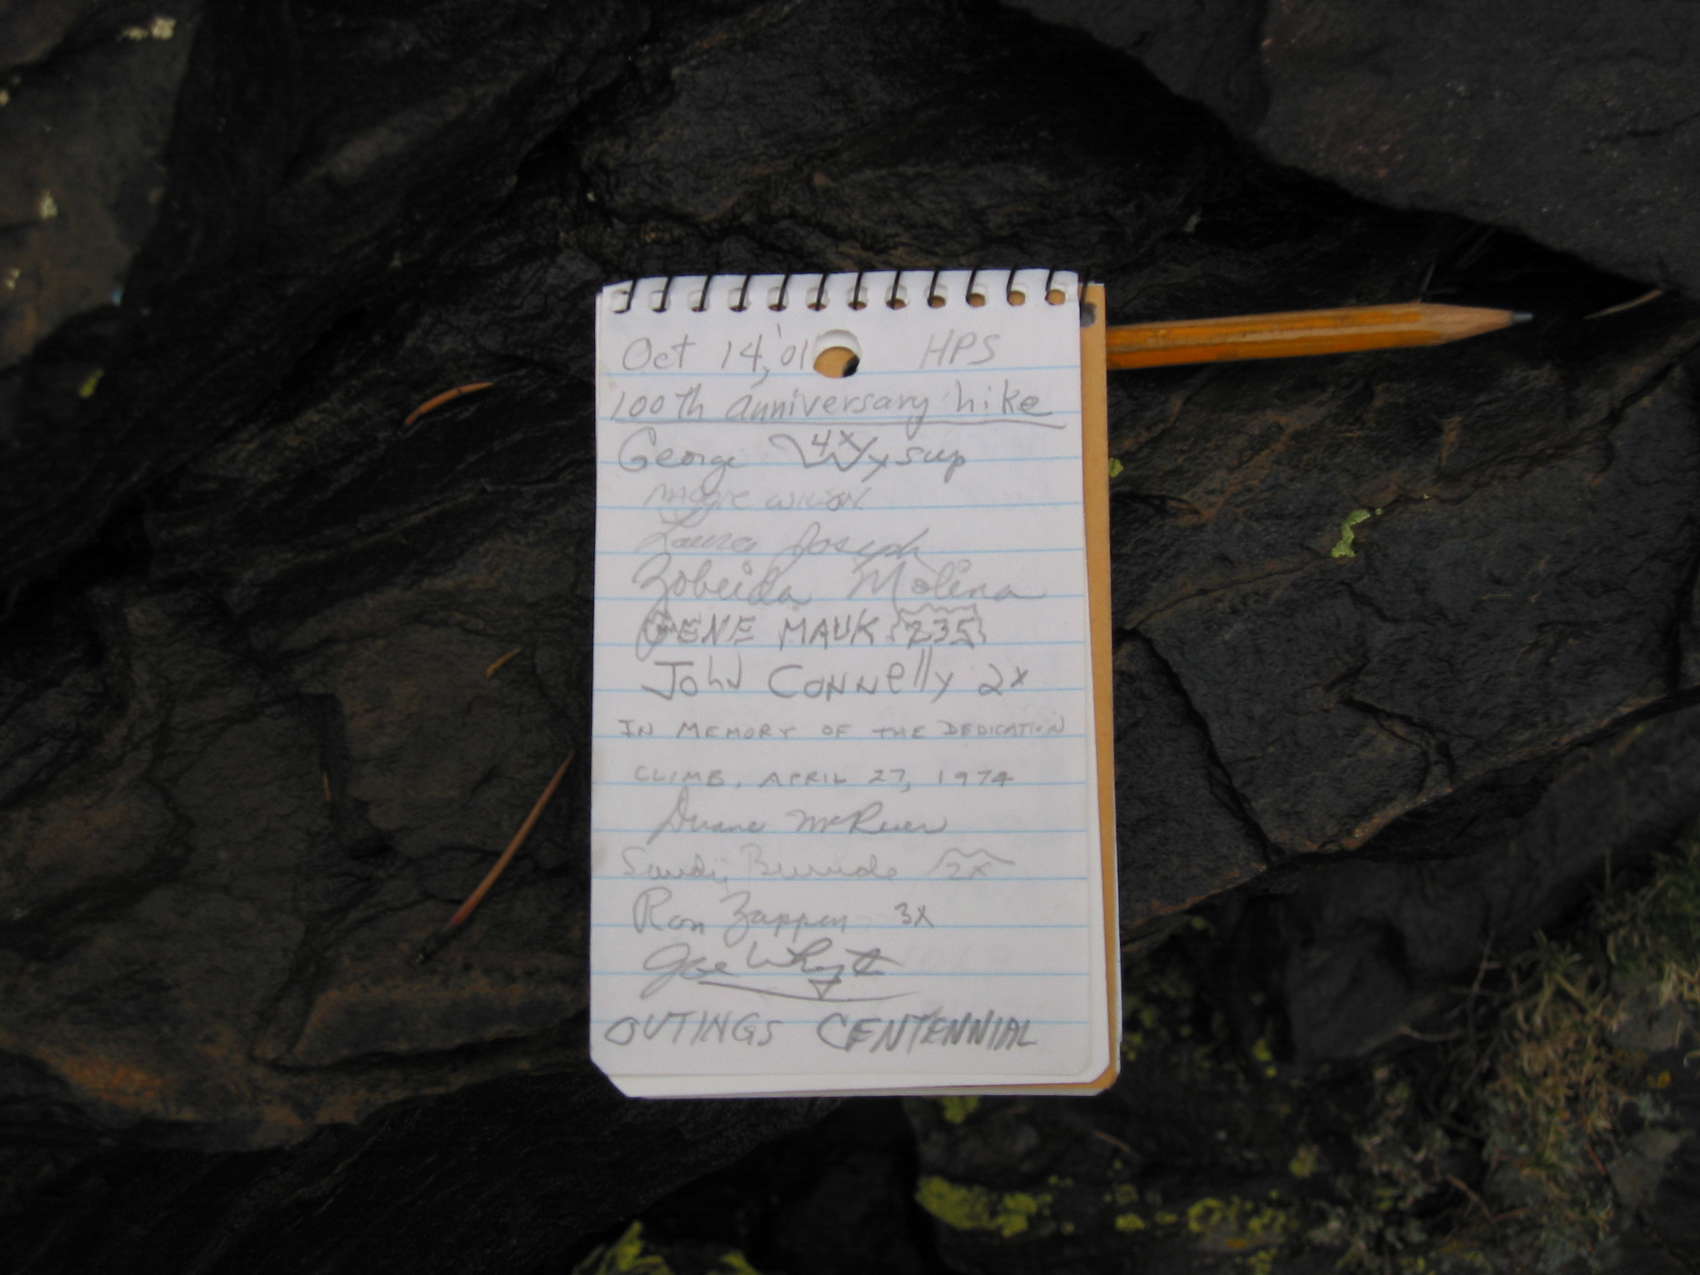 Oct 14,'01 HPS
100th anniversary hike
George 4x Wysup
Laura Joseph
Zobeida Molina
GENE MAUK 235
John Connelly 2x
IN MEMORY OF THE DEDICATION
CLIMB, APRIL 27, 1974
Duane McRuer
Sandy 2x
Ron Zappen 3x
Joe Whyte
OUTINGS CENTENNIAL